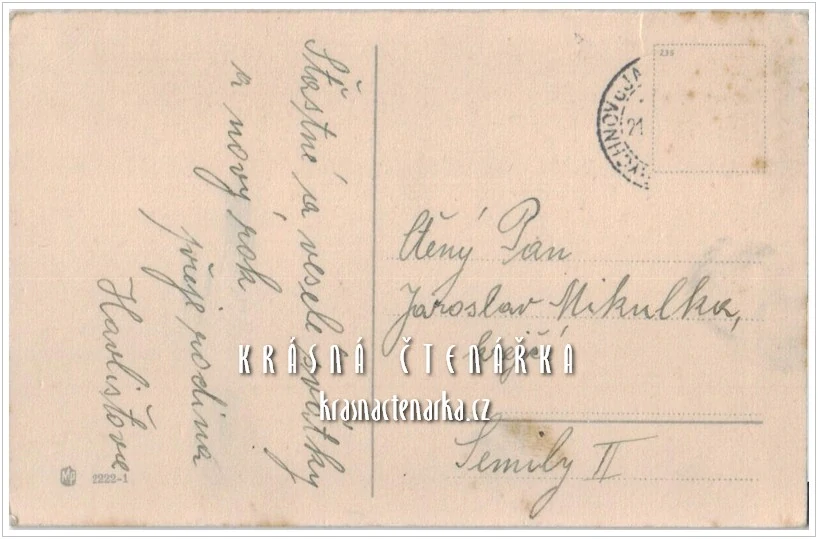 Šťastné a veselé svátky
a nový rok
přeje rodina
Havlištova
Ctěný Pan
Jaroslav Mikulka,
krejčí
Semily II
KRÁSNÁ ČTENÁŘKA
krasnactenarka.cz
236
21
2222-1